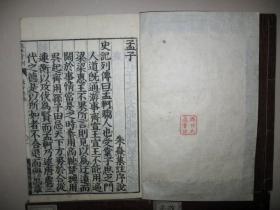 孟子
朱熹集註序說
史記列傳曰孟軻騶人也受業子思之門
人道既通游事齊宣王宣王不能用適
梁梁惠王不果所言則見以為迂遠而
闊於事情當是之時秦用商鞅楚魏用
吳起齊用孫子田忌天下方務於合從
連衡以攻伐為賢而孟軻乃述唐虞三
代之德是以所如者不合退而與萬